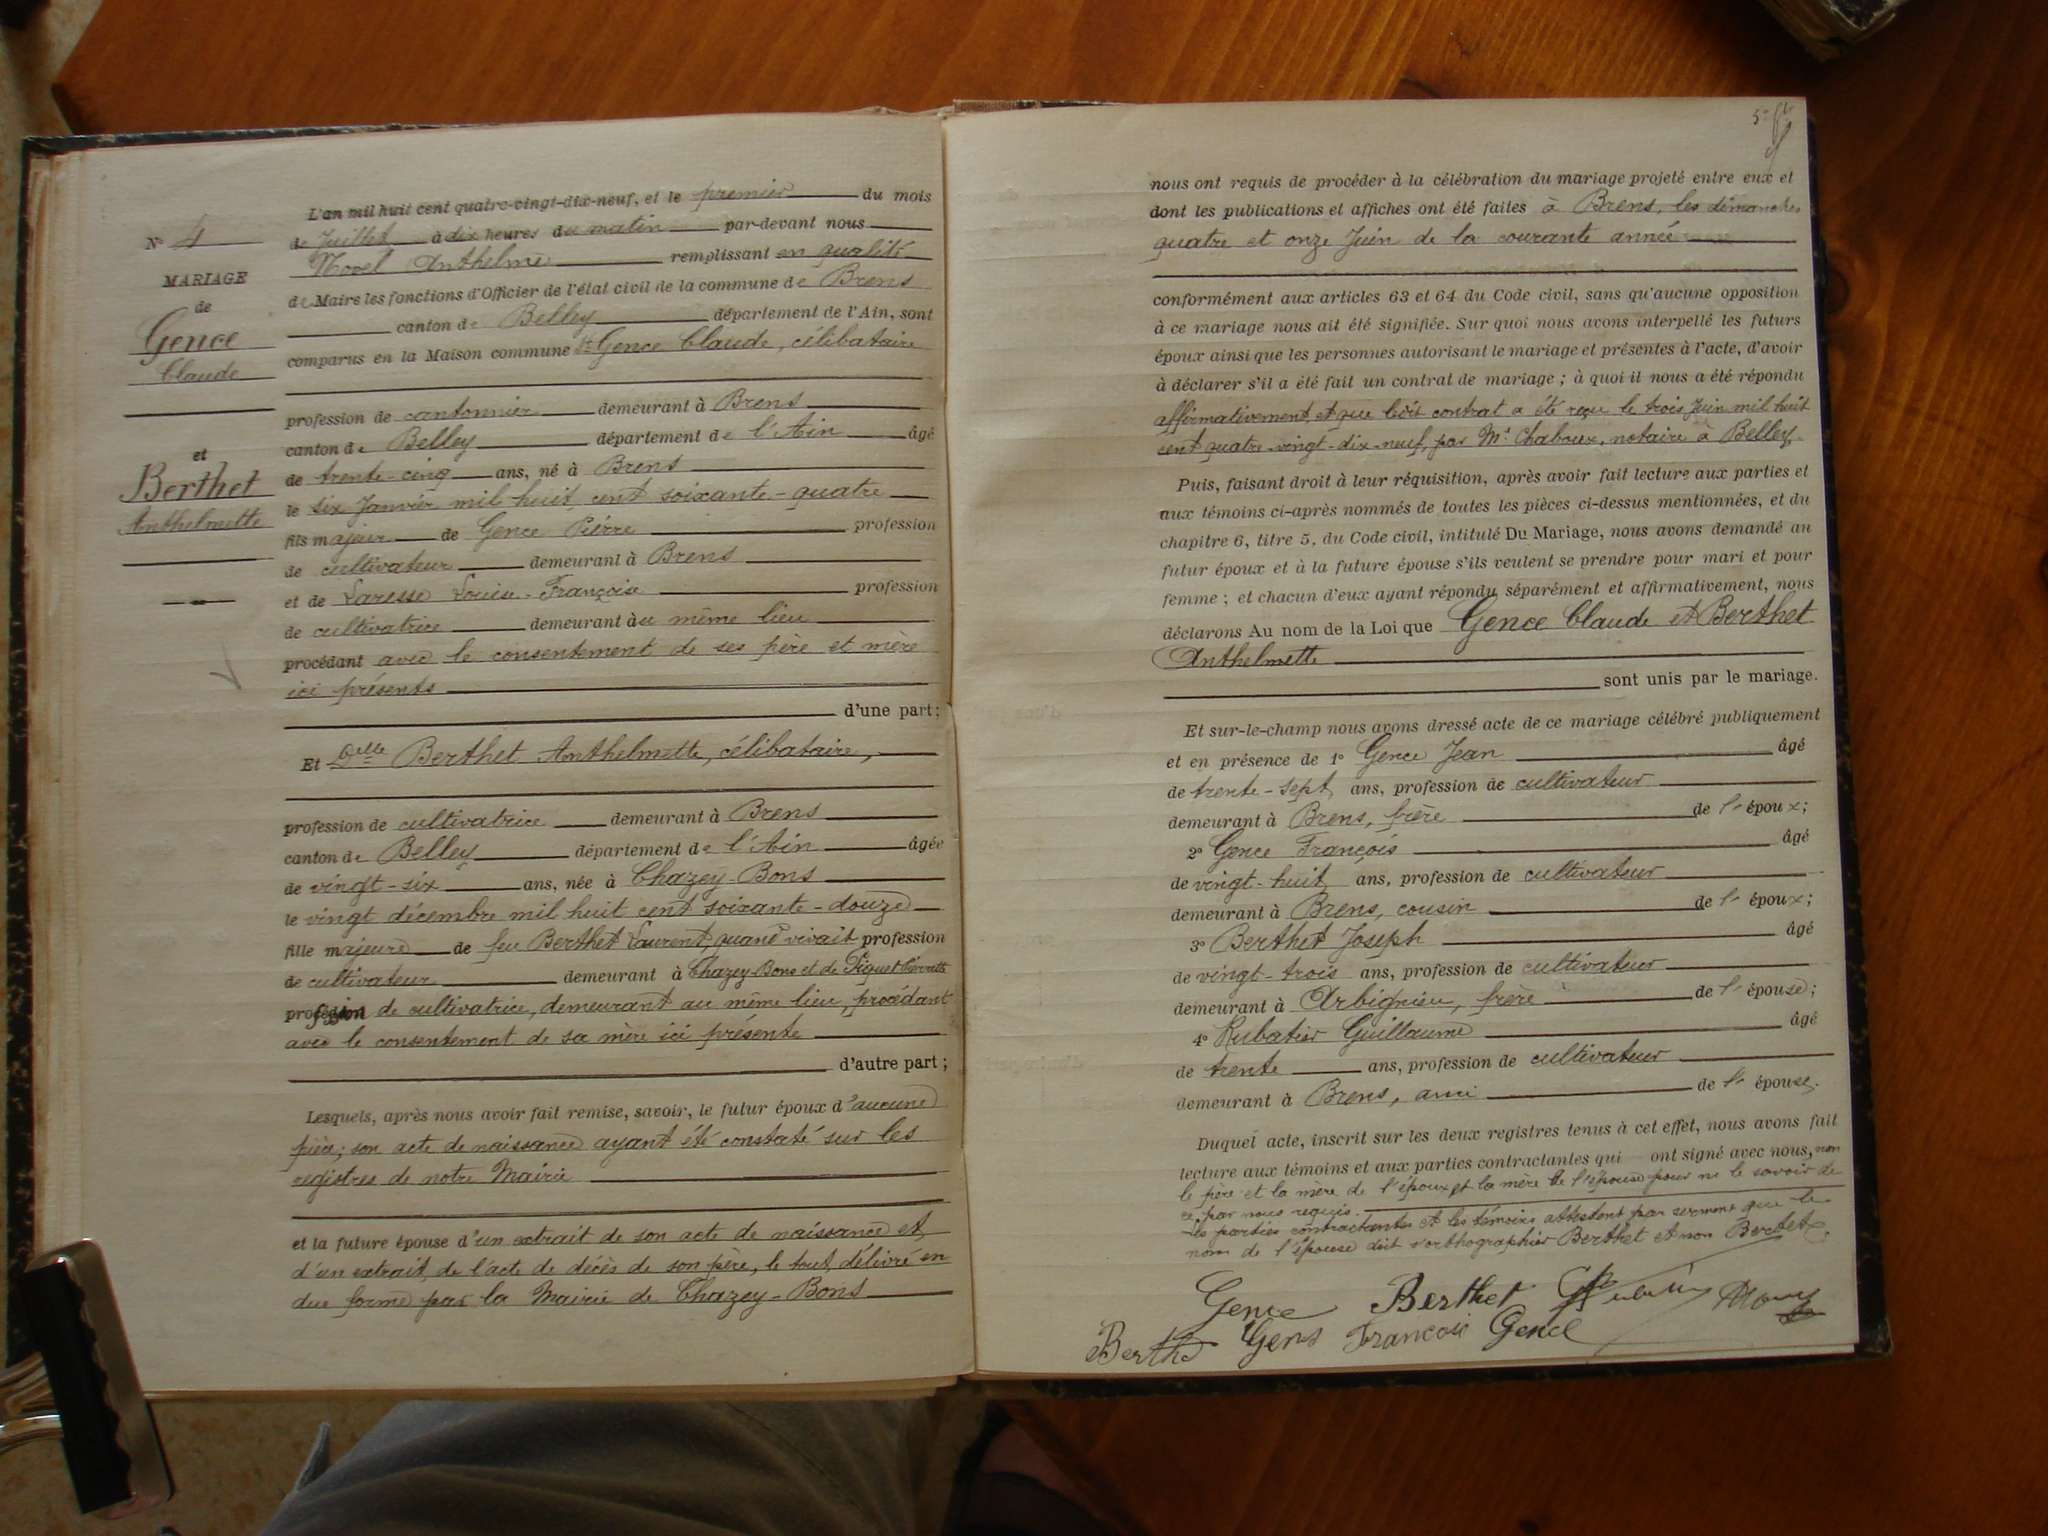 N° 4
MARIAGE
de
Gence
Claude
et
Berthet
Anthelmette
L'an mil huit cent quatre-vingt-dix-neuf, et le premier du mois
de Juillet à dix heures du matin par-devant nous
Morel Anthelme remplissant en qualité
de Maire les fonctions d'Officier de l'état civil de la commune de Brens
canton de Belley département de l'Ain, sont
comparus en la Maison commune Sr Gence Claude, célibataire
profession de cantonnier demeurant à Brens
canton de Belley département de l'Ain âgé
de trente-cinq ans, né à Brens
le six Janvier mil huit cent soixante-quatre
fils majeur de Gence Pierre profession
de cultivateur demeurant à Brens
et de Laresse Louise-Françoise profession
de cultivatrice demeurant au même lieu
procédant avec le consentement de ses père et mère
ici présents
d'une part;
Et Delle Berthet Anthelmette, célibataire,
profession de cultivatrice demeurant à Brens
canton de Belley département de l'Ain âgée
de vingt-six ans, née à Chazey-Bons
le vingt décembre mil huit cent soixante-douze
fille majeure de feu Berthet Laurent, quand vivait profession
de cultivateur demeurant à Chazey-Bons et de Piguet
de cultivatrice, demeurant au même lieu, procédant
avec le consentement de sa mère ici présente
d'autre part;
Lesquels, après nous avoir fait remise, savoir, le futur époux d'aucune
pièce; son acte de naissance ayant été constaté sur les
registres de notre Mairie
et la future épouse d'un extrait de son acte de naissance et
d'un extrait de l'acte de décès de son père, le tout délivré en
due forme par la Mairie de Chazey-Bons
nous ont requis de procéder à la célébration du mariage projeté entre eux et
dont les publications et affiches ont été faites à Brens, les dimanches
quatre et onze Juin de la courante année
conformément aux articles 63 et 64 du Code civil, sans qu'aucune opposition
à ce mariage nous ait été signifiée. Sur quoi nous avons interpellé les futurs
époux ainsi que les personnes autorisant le mariage et présentes à l'acte, d'avoir
à déclarer s'il a été fait un contrat de mariage; à quoi il nous a été répondu
affirmativement, et que ledit contrat a été reçu le trois Juin mil huit
cent quatre-vingt-dix-neuf, par Me Chaboux, notaire à Belley.
Puis, faisant droit à leur réquisition, après avoir fait lecture aux parties et
aux témoins ci-après nommés de toutes les pièces ci-dessus mentionnées, et du
chapitre 6, titre 5, du Code civil, intitulé Du Mariage, nous avons demandé au
futur époux et à la future épouse s'ils veulent se prendre pour mari et pour
femme; et chacun d'eux ayant répondu séparément et affirmativement, nous
déclarons Au nom de la Loi que Gence Claude et Berthet
Anthelmette
sont unis par le mariage.
Et sur-le-champ nous avons dressé acte de ce mariage célébré publiquement
et en présence de 1° Gence Jean âgé
de trente-sept ans, profession de cultivateur
demeurant à Brens, frère de l'époux;
2° Gence François âgé
de vingt-huit ans, profession de cultivateur
demeurant à Brens, cousin de l'époux;
3° Berthet Joseph âgé
de vingt-trois ans, profession de cultivateur
demeurant à Arbignieu, frère de l'épouse;
4° Rubatier Guillaume âgé
de trente ans, profession de cultivateur
demeurant à Brens, ami de l'épouse.
Duquel acte, inscrit sur les deux registres tenus à cet effet, nous avons fait
lecture aux témoins et aux parties contractantes qui ont signé avec nous, non
le père et la mère de l'époux et la mère de l'épouse pour ne le savoir de
ce par nous requis.
Les parties contractantes et les témoins attestent par serment que le
nom de l'épouse doit s'orthographier Berthet et non Bertet.
Gence Berthet
Gens François Gence